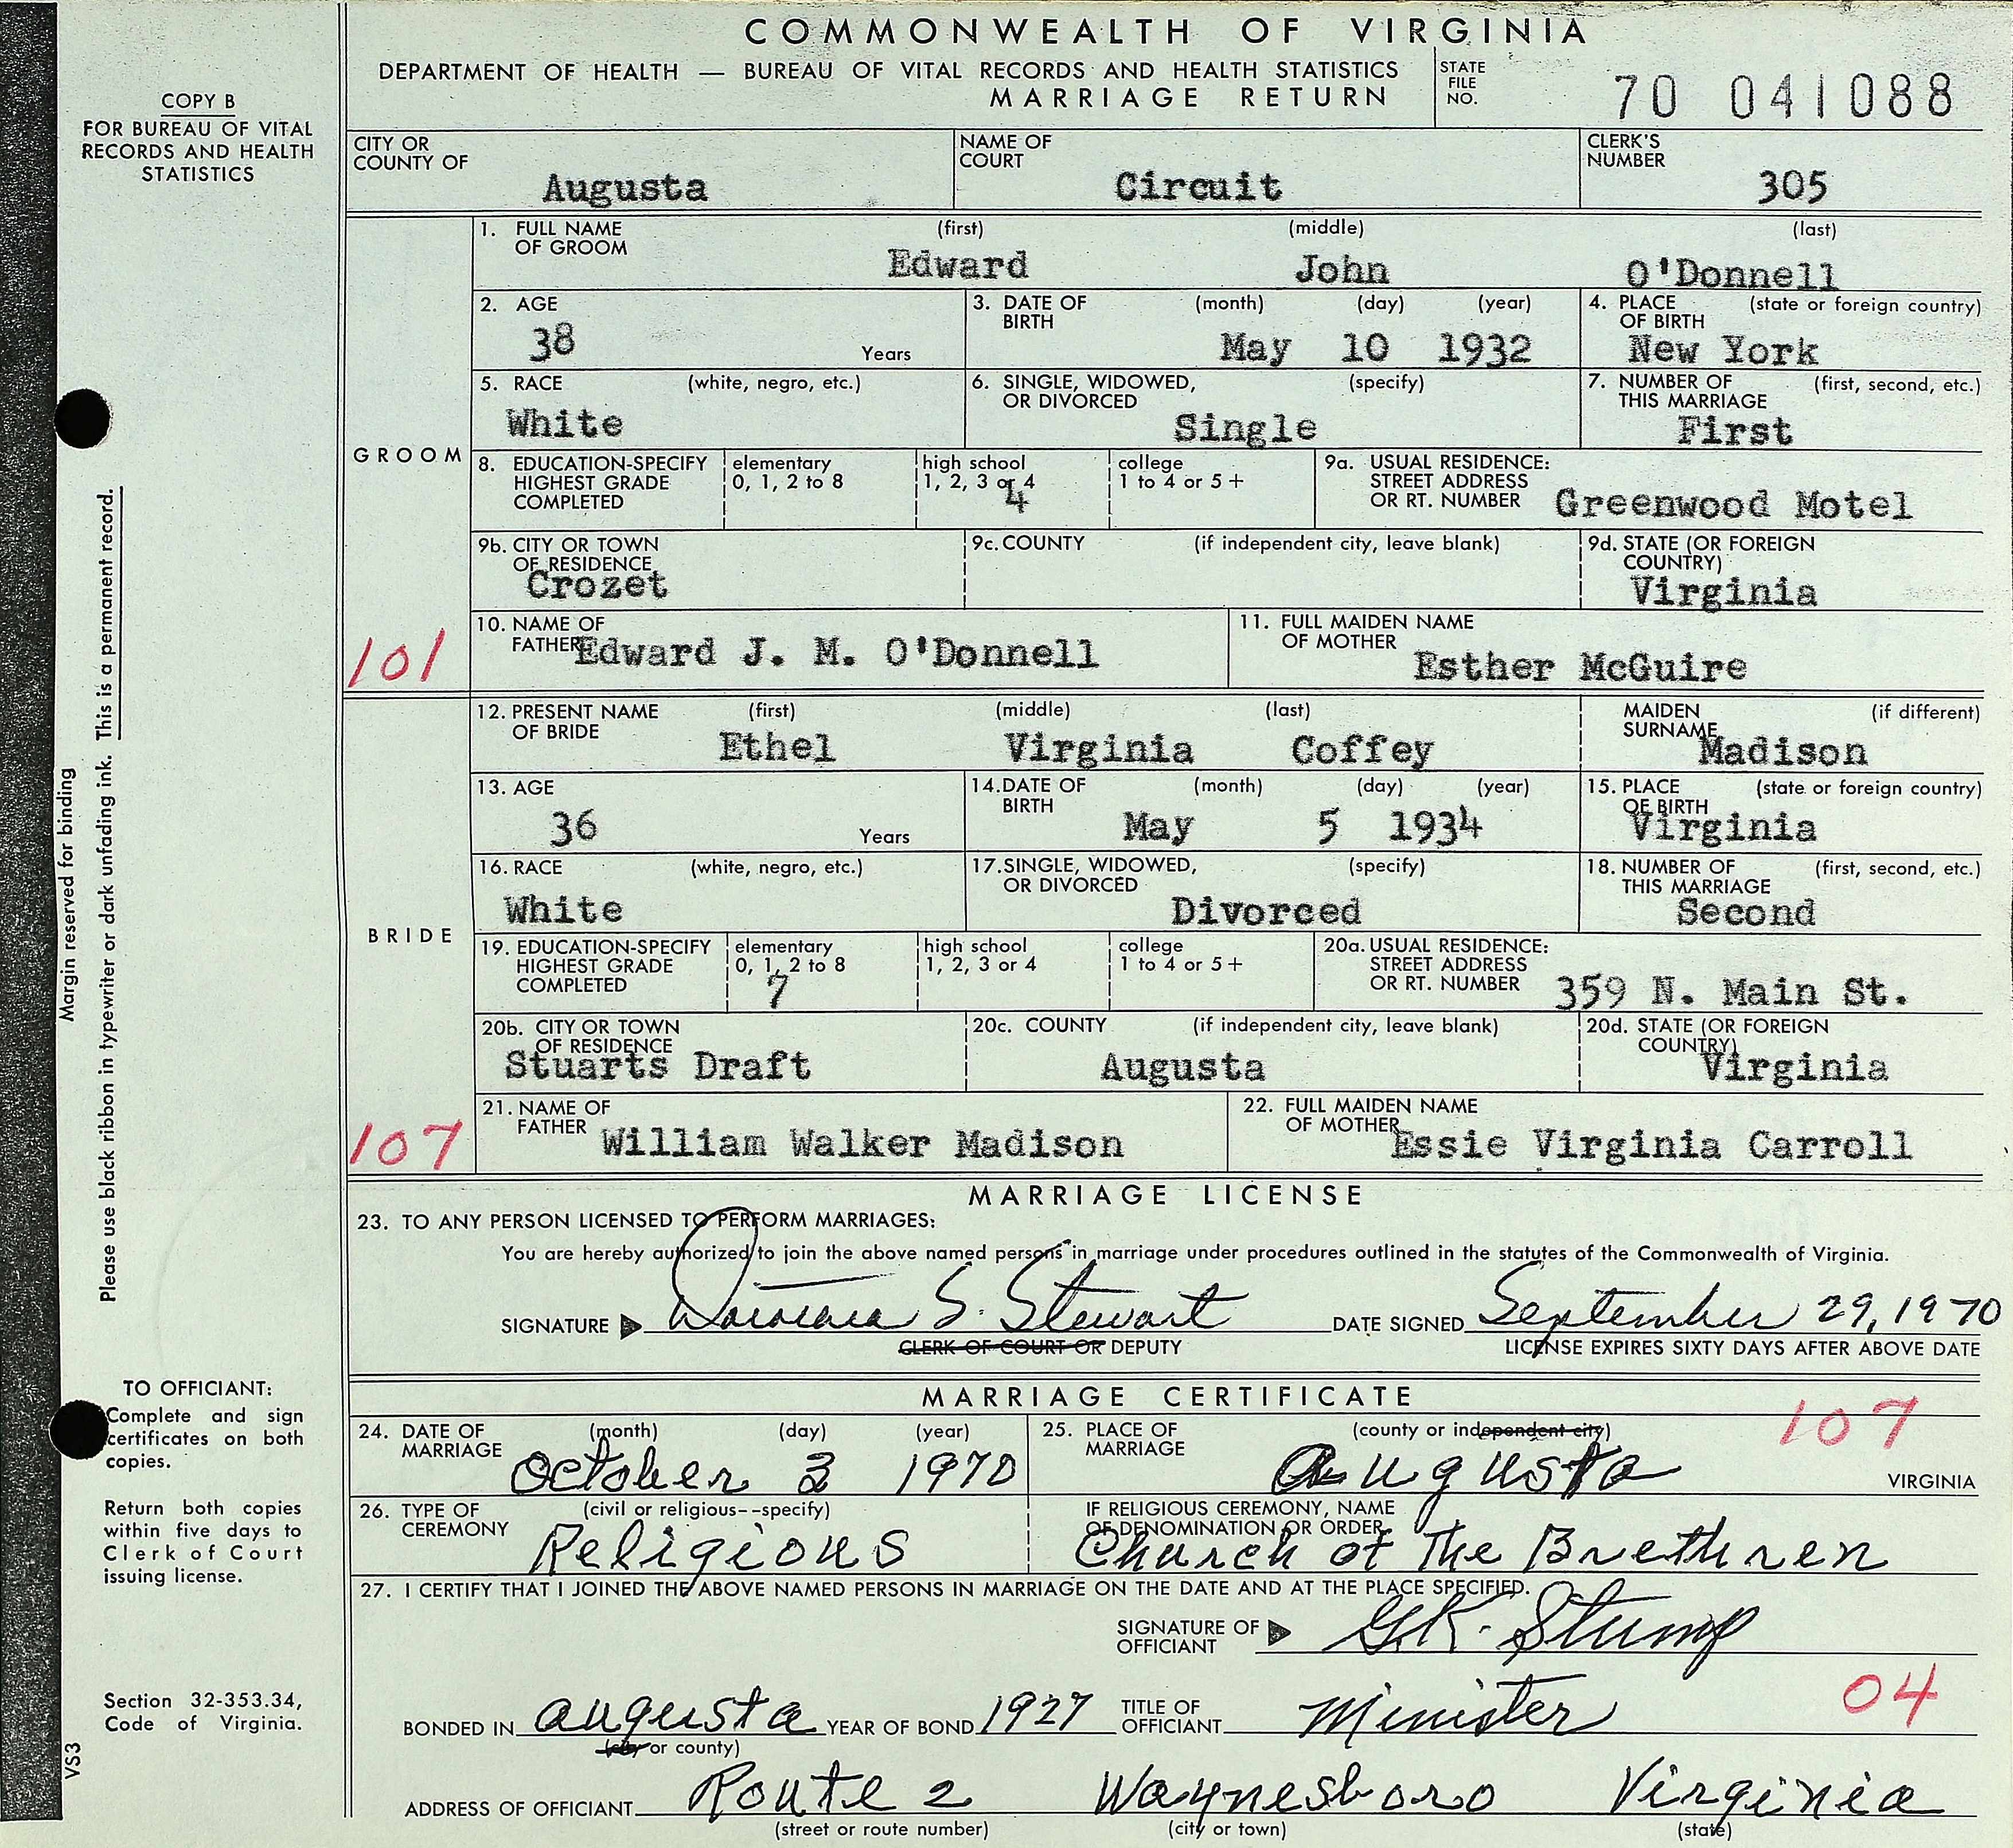 COMMONWEALTH OF VIRGINIA
DEPARTMENT OF HEALTH — BUREAU OF VITAL RECORDS AND HEALTH STATISTICS
MARRIAGE RETURN
STATE FILE NO. 70 041088
COPY B
FOR BUREAU OF VITAL
RECORDS AND HEALTH
STATISTICS
CITY OR COUNTY OF Augusta
NAME OF COURT Circuit
CLERK'S NUMBER 305
GROOM
1. FULL NAME OF GROOM (first) Edward (middle) John (last) O'Donnell
2. AGE 38 Years
3. DATE OF BIRTH (month) (day) (year) May 10 1932
4. PLACE OF BIRTH (state or foreign country) New York
5. RACE (white, negro, etc.) White
6. SINGLE, WIDOWED, OR DIVORCED (specify) Single
7. NUMBER OF THIS MARRIAGE (first, second, etc.) First
8. EDUCATION-SPECIFY HIGHEST GRADE COMPLETED elementary 0, 1, 2 to 8 high school 1, 2, 3 or 4 4 college 1 to 4 or 5 +
9a. USUAL RESIDENCE: STREET ADDRESS OR RT. NUMBER Greenwood Motel
9b. CITY OR TOWN OF RESIDENCE Crozet
9c. COUNTY (if independent city, leave blank)
9d. STATE (OR FOREIGN COUNTRY) Virginia
101
10. NAME OF FATHER Edward J. M. O'Donnell
11. FULL MAIDEN NAME OF MOTHER Esther McGuire
BRIDE
12. PRESENT NAME OF BRIDE (first) Ethel (middle) Virginia (last) Coffey
MAIDEN SURNAME (if different) Madison
13. AGE 36 Years
14. DATE OF BIRTH (month) (day) (year) May 5 1934
15. PLACE OF BIRTH (state or foreign country) Virginia
16. RACE (white, negro, etc.) White
17. SINGLE, WIDOWED, OR DIVORCED (specify) Divorced
18. NUMBER OF THIS MARRIAGE (first, second, etc.) Second
19. EDUCATION-SPECIFY HIGHEST GRADE COMPLETED elementary 0, 1, 2 to 8 7 high school 1, 2, 3 or 4 college 1 to 4 or 5 +
20a. USUAL RESIDENCE: STREET ADDRESS OR RT. NUMBER 359 N. Main St.
20b. CITY OR TOWN OF RESIDENCE Stuarts Draft
20c. COUNTY (if independent city, leave blank) Augusta
20d. STATE (OR FOREIGN COUNTRY) Virginia
107
21. NAME OF FATHER William Walker Madison
22. FULL MAIDEN NAME OF MOTHER Essie Virginia Carroll
MARRIAGE LICENSE
23. TO ANY PERSON LICENSED TO PERFORM MARRIAGES:
You are hereby authorized to join the above named persons in marriage under procedures outlined in the statutes of the Commonwealth of Virginia.
SIGNATURE S. Stewart DATE SIGNED September 29, 1970
CLERK OF COURT OR DEPUTY LICENSE EXPIRES SIXTY DAYS AFTER ABOVE DATE
MARRIAGE CERTIFICATE
107
24. DATE OF MARRIAGE (month) (day) (year) October 3 1970
25. PLACE OF MARRIAGE (county or independent city) Augusta VIRGINIA
26. TYPE OF CEREMONY (civil or religious--specify) Religious
IF RELIGIOUS CEREMONY, NAME OF DENOMINATION OR ORDER Church of The Brethren
27. I CERTIFY THAT I JOINED THE ABOVE NAMED PERSONS IN MARRIAGE ON THE DATE AND AT THE PLACE SPECIFIED.
SIGNATURE OF OFFICIANT G.K. Stump
04
BONDED IN Augusta YEAR OF BOND 1927 TITLE OF OFFICIANT Minister
(city or county)
ADDRESS OF OFFICIANT Route 2 Waynesboro Virginia
(street or route number) (city or town) (state)
Margin reserved for binding
Please use black ribbon in typewriter or dark unfading ink. This is a permanent record.
TO OFFICIANT:
Complete and sign
certificates on both
copies.
Return both copies
within five days to
Clerk of Court
issuing license.
Section 32-353.34,
Code of Virginia.
VS3